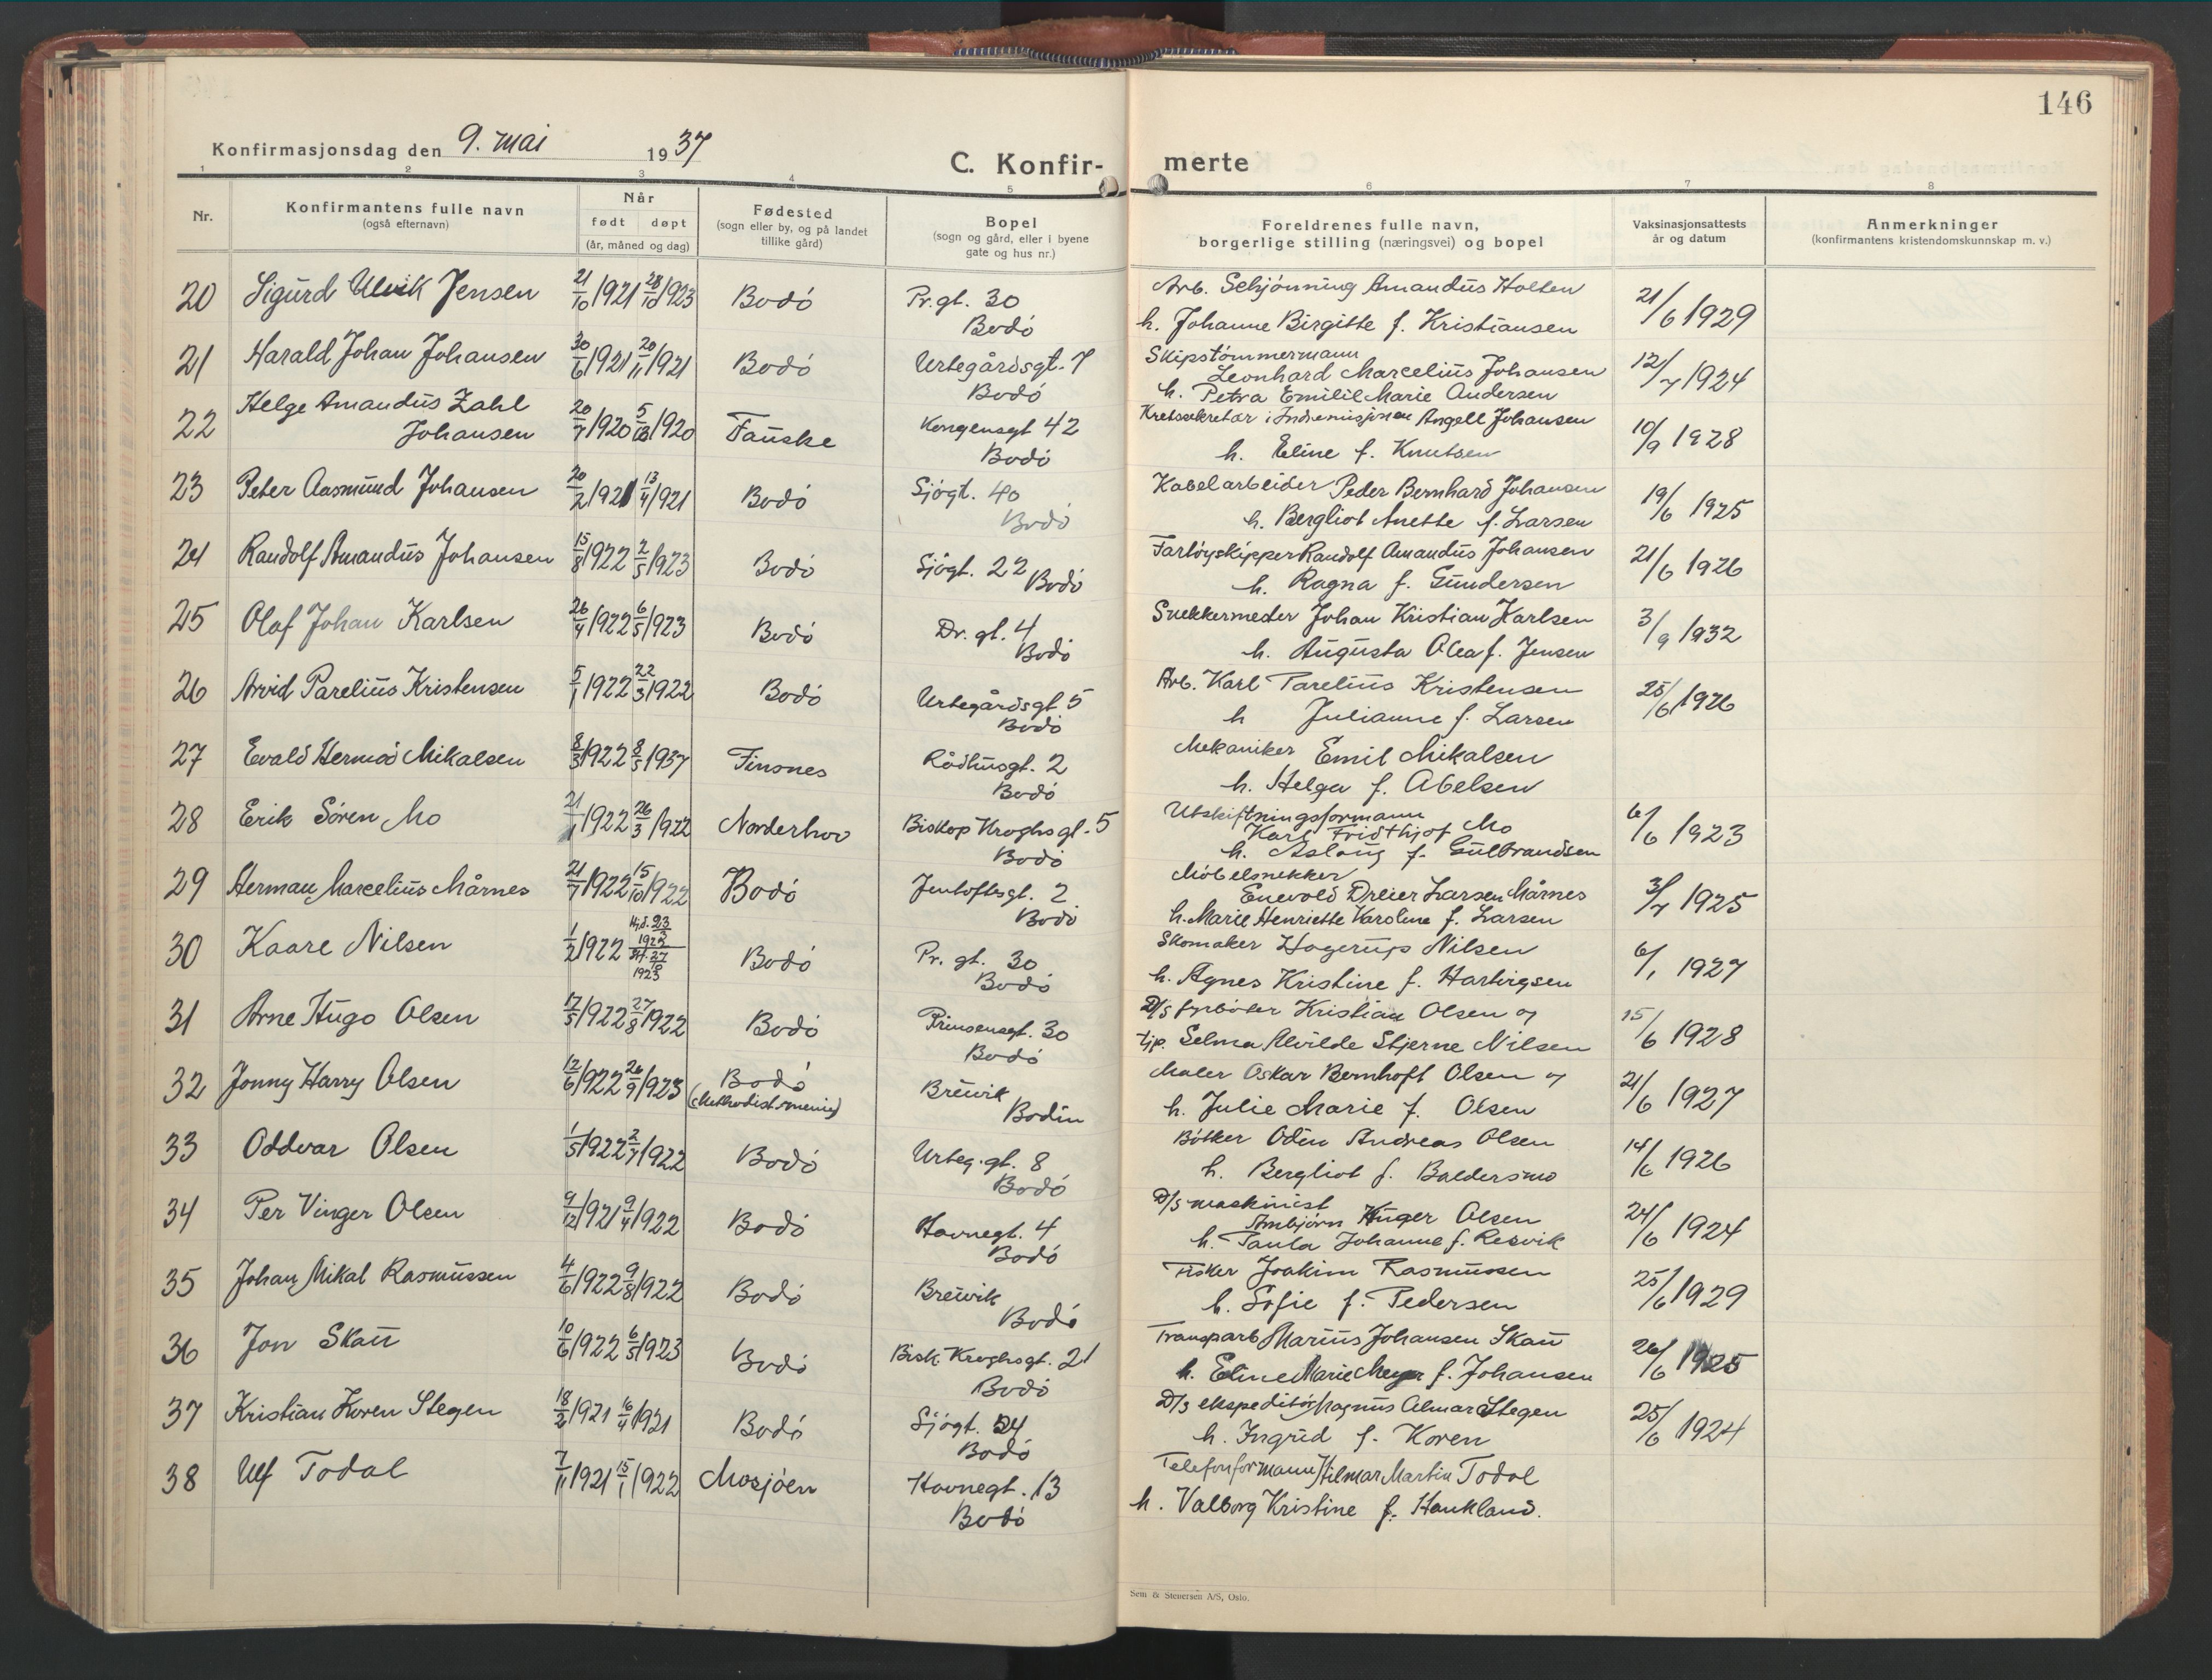 146
Konfirmasjonsdag den 9. mai 1937
C. Konfir- merte
1 2 3 4 5 6 7 8
Nr.
Konfirmantens fulle navn
(også efternavn)
Når
født døpt
(år, måned og dag)
Fødested
(sogn eller by, og på landet
tillike gård)
Bopel
(sogn og gård, eller i byene
gate og hus nr.)
Foreldrenes fulle navn,
borgerlige stilling (næringsvei) og bopel
Vaksinasjonsattests
år og datum
Anmerkninger
(konfirmantens kristendomskunnskap m. v.)
20 Sigurd Ulvik Jensen 21/10 1921 28/10 1923 Bodö Pr. gt. 30 Bodö Arb. Schjönning Amandus Holten 21/6 1929
h. Johanne Birgitte f. Kristiansen
21 Harald Johan Johansen 30/6 1921 20/11 1921 Bodö Urtegårdsgt. 7 Bodö Skipstömmermann
Leonhard Marcelius Johansen 12/7 1924
h. Petra Emilie Marie Andersen
22 Helge Amandus Zahl
Johansen 20/7 1920 5/12 1920 Fauske Kongensgt 42 Bodö Kretssekretær i Indremisjonen Angell Johansen 10/9 1928
h. Eline f. Knutsen
23 Peter Aasmund Johansen 20/2 1921 13/4 1921 Bodö Sjögt. 40 Bodö Kabelarbeider Peder Bernhard Johansen 19/6 1925
h. Bergliot Anette f. Larsen
24 Randolf Amandus Johansen 15/8 1922 2/5 1923 Bodö Sjögt. 22 Bodö Fartöyskipper Randolf Amandus Johansen 21/6 1926
h. Ragna f. Gundersen
25 Olaf Johan Karlsen 26/4 1922 6/5 1923 Bodö Dr. gt. 4 Bodö Snekkermester Johan Kristian Karlsen 3/9 1932
h. Augusta Olea f. Jensen
26 Arvid Parelius Kristensen 5/1 1922 22/3 1922 Bodö Urtegårdsgt 5 Bodö Arb. Karl Parelius Kristensen 25/6 1926
h Julianne f. Larsen
27 Evald Hermod Mikalsen 8/3 1922 8/5 1937 Finsnes Rådhusgt. 2 Bodö Mekaniker Emil Mikalsen
h. Helga f. Abelsen
28 Erik Sören Mo 21/1 1922 26/3 1922 Norderhov Biskop Kroghsgt. 5 Bodö Utskiftningsformann
Karl Fridthjof Mo 6/6 1923
h. Aslaug f. Gulbrandsen
29 Herman Marcelius Mårnes 21/7 1922 15/10 1922 Bodö Jentoftsgt. 2 Bodö Möbelsnekker
Enevold Dreier Larsen Mårnes 3/7 1925
h. Marie Henriette Karoline f. Larsen
30 Kaare Nilsen 1/2 1922 Hjd. 23/3 1922 Bodö Pr. gt. 30 Bodö Skomaker Hagerup Nilsen 6/1 1927
1923 h. Agnes Kristine f. Hartvigsen
31 Arne Hugo Olsen 17/5 1922 27/8 1922 Bodö Prinsensgt. 30 Bodö D/s fyrböter Kristian Olsen og 15/6 1928
tjp. Selma Alvilde Stjerne Nilsen
32 Jonny Harry Olsen 12/6 1922 26/9 1923 Bodö
(Methodistmenig) Breivik Bodin Maler Oskar Bernhoft Olsen og 21/6 1927
h. Julie Marie f. Olsen
33 Oddvar Olsen 1/5 1922 2/7 1922 Bodö Urteg. gt. 8 Bodö Bötker Odin Andreas Olsen 14/6 1926
h. Bergliot f. Baldersmo
34 Per Vinger Olsen 9/12 1921 9/4 1922 Bodö Havnegt. 4 Bodö D/s maskinist
Arnbjörn Olsen 24/6 1924
h. Paula Johanne f. Resvik
35 Johan Mikal Rasmussen 4/6 1922 9/8 1922 Bodö Breivik Bodö Fisker Joakim Rasmussen 25/6 1929
h. Sofie f. Pedersen
36 Jon Skau 10/6 1922 6/5 1923 Bodö Bisk. Kroghsgt. 21 Bodö Transparb Marius Johansen Skau 26/6 1925
h. Eline Marie Meyer f. Johansen
37 Kristian Koren Stegen 18/2 1921 16/4 1921 Bodö Sjögt. 24 Bodö D/s ekspeditör Magnus Almar Stegen 25/6 1924
h. Ingrid f. Koren
38 Ulf Todal 7/11 1921 15/1 1922 Mosjöen Havnegt. 13 Bodö Telefonformann Hilmar Martin Todal
h. Valborg Kristine f. Haukland.
Sem & Stenersen A/S, Oslo.